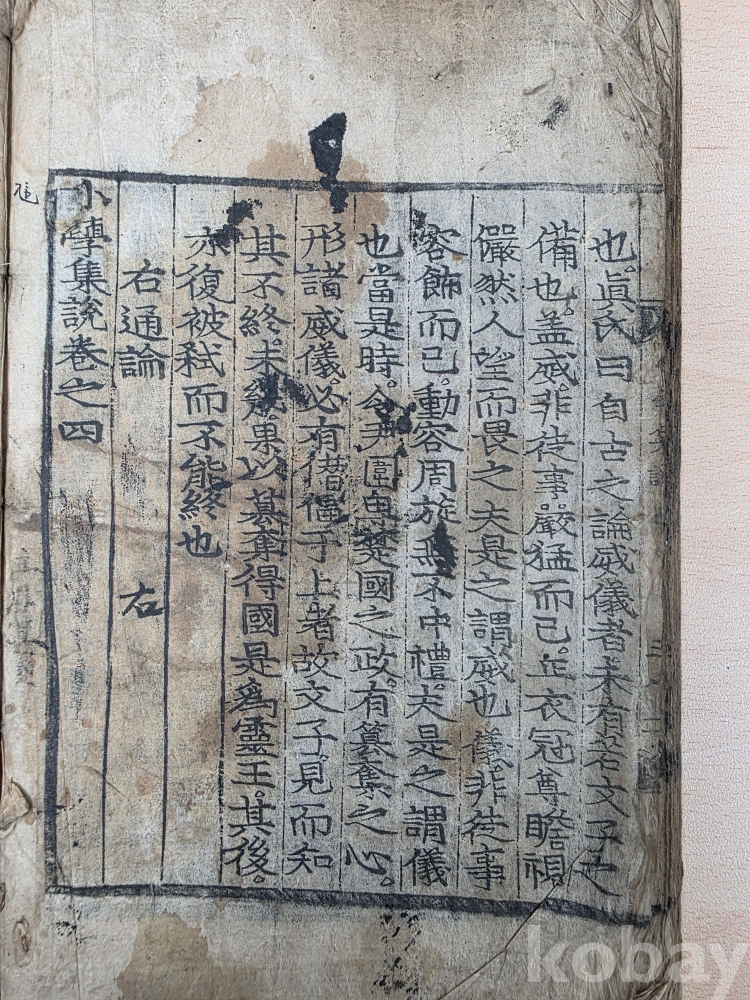 也。眞氏曰自古之論威儀者未有若文子之
備也。盖威。非徒事嚴猛而已。正衣冠尊瞻視。
儼然人望而畏之夫是之謂威也儀非徒事
容飾而已。動容周旋無不中禮。夫是之謂儀
也當是時。令尹圍專楚國之政。有簒奪之心。
形諸威儀。必有僭偪于上者故文子。見而知
其不終。未幾。果以簒奪得國是爲靈王。其後。
亦復被弑而不能終也
右通論 右
小學集說卷之四
kobay